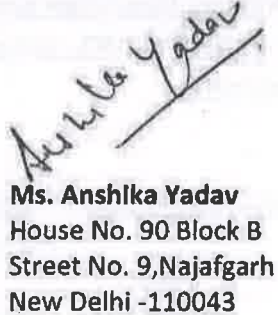 Anshika Yadav
Ms. Anshika Yadav
House No. 90 Block B
Street No. 9,Najafgarh
New Delhi -110043